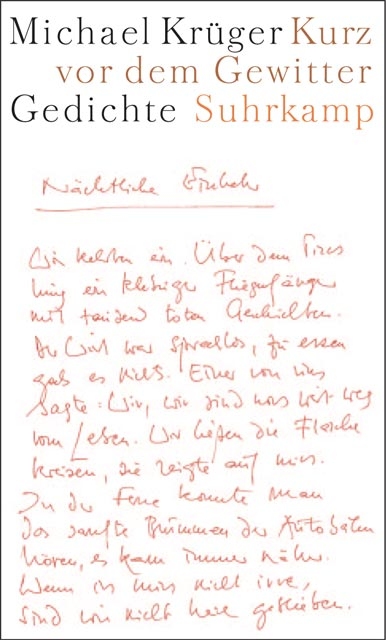 Michael Krüger Kurz
vor dem Gewitter
Gedichte Suhrkamp
Nächtliche Einkehr
Wir kehrten ein. Über dem Tresen
hing ein klebriger Fliegenfänger
mit tausend toten Geschichten.
Der Wirt war sprachlos, zu essen
gab es nichts. Einer von uns
sagte: Wir, wir sind noch weit weg
vom Leben. Wir ließen die Flasche
kreisen, sie zeigte auf mich.
In der Ferne konnte man
das sanfte Brummen der Autobahn
hören, es kam immer näher.
Wenn ich mich nicht irre,
sind wir nicht hier geblieben.